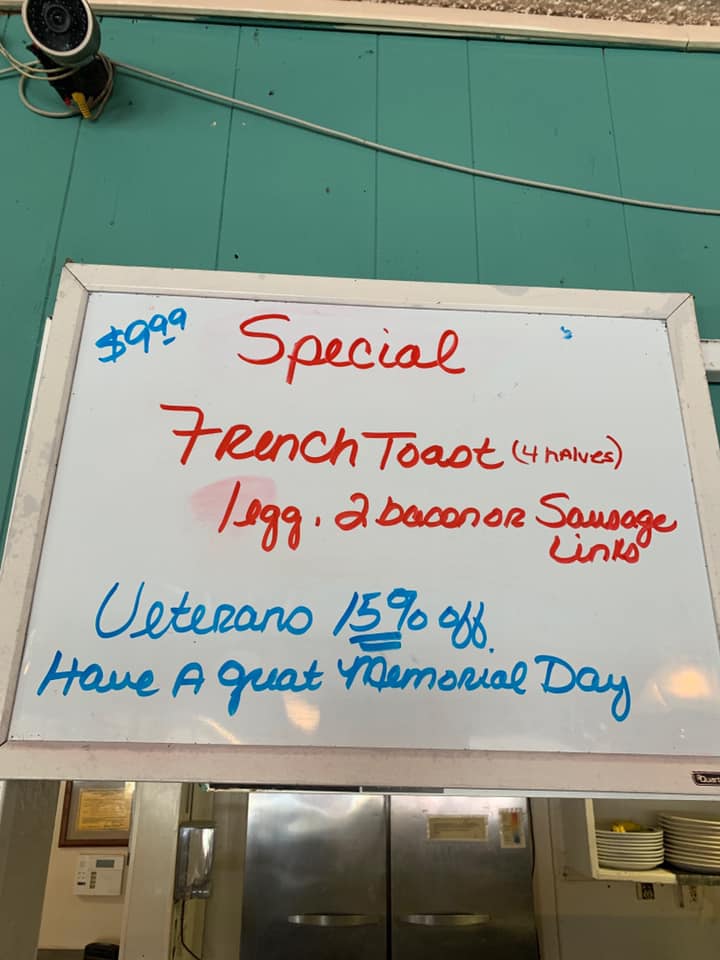 $9.99 Special
French Toast (4 halves)
1 egg. 2 bacon or Sausage
Links
Veterans 15% off.
Have A great Memorial Day